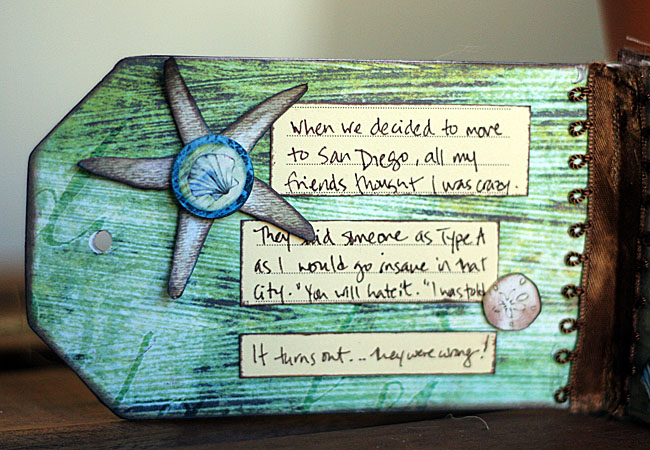 When we decided to move
to San Diego, all my
friends thought I was crazy.
They said someone as Type A
as I would go insane in that
city. "You will hate it." I was told
It turns out... they were wrong!